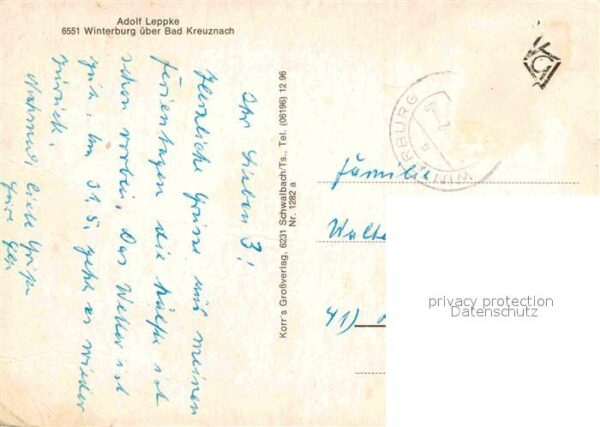 Adolf Leppke
6551 Winterburg über Bad Kreuznach
Ihr Lieben 3!
Herzliche Grüsse aus meinen
Ferientagen die Hälfte ist
schon vorbei. Das Wetter ist
gut. Am 31.5. geht es wieder
zurück.
Nochmal liebe Grüße
Eure
Korr's Großverlag, 6231 Schwalbach/Ts., Tel. (06196) 12 96
Nr. 1282 a
WINTERBURG
Familie
Walte
41)
privacy protection
Datenschutz